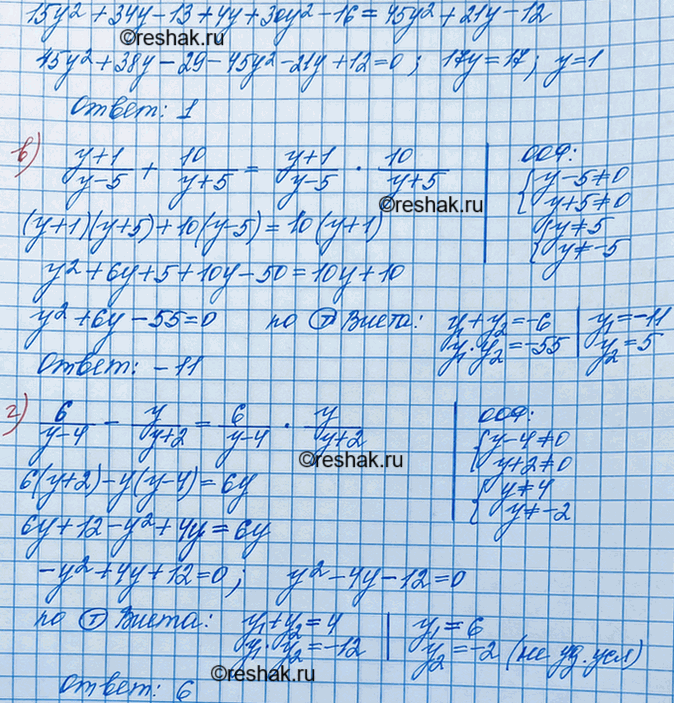 15y² + 34y - 13 + 4y + 30y² - 16 = 45y² + 21y - 12
©reshak.ru
45y² + 38y - 29 - 45y² - 21y + 12 = 0 ; 17y = 17 ; y = 1
Ответ: 1
в) (y+1)/(y-5) + 10/(y+5) = (y+1)/(y-5) · 10/(y+5)
ООФ:
{ y-5≠0
y+5≠0
{ y≠5
y≠-5
©reshak.ru
(y+1)(y+5) + 10(y-5) = 10(y+1)
y² + 6y + 5 + 10y - 50 = 10y + 10
y² + 6y - 55 = 0 по Ⓣ Виета: y₁ + y₂ = -6 | y₁ = -11
y₁ · y₂ = -55 | y₂ = 5
Ответ: -11
г) 6/(y-4) - y/(y+2) = 6/(y-4) · y/(y+2)
ООФ:
{ y-4≠0
y+2≠0
{ y≠4
y≠-2
©reshak.ru
6(y+2) - y(y-4) = 6y
6y + 12 - y² + 4y = 6y
-y² + 4y + 12 = 0 ; y² - 4y - 12 = 0
по Ⓣ Виета: y₁ + y₂ = 4 | y₁ = 6
y₁ · y₂ = -12 | y₂ = -2 (не уд. усл)
©reshak.ru
Ответ: 6